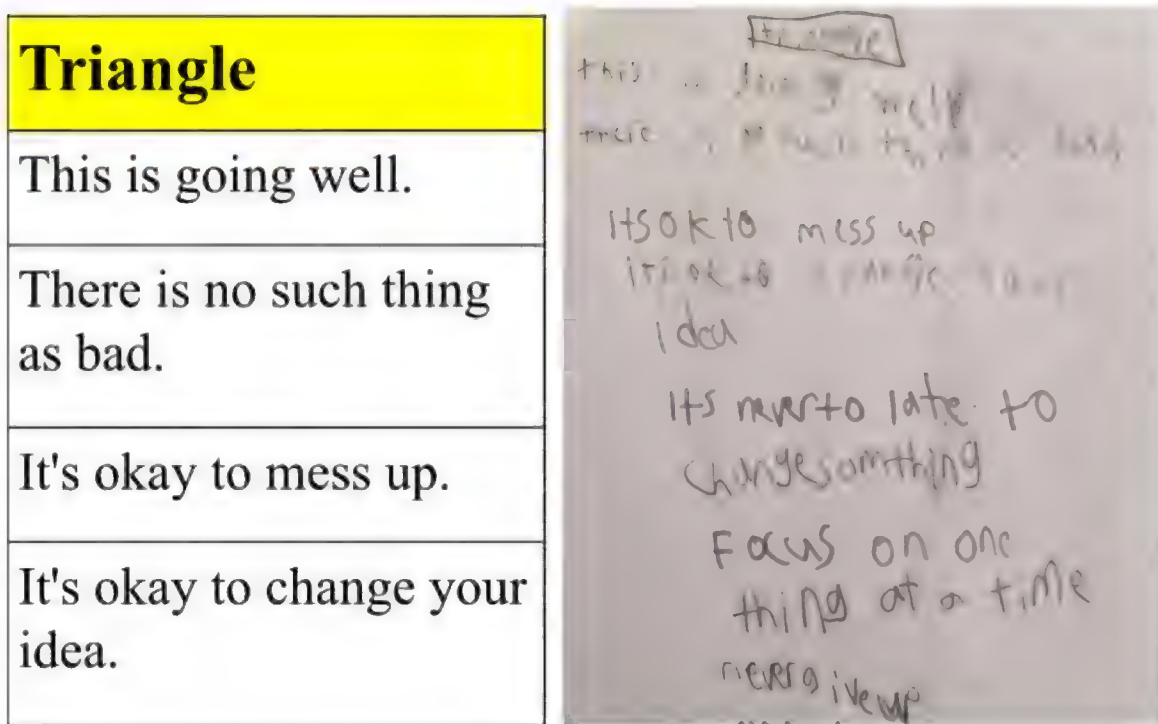 Triangle
This is going well.
There is no such thing
as bad.
It's okay to mess up.
It's okay to change your
idea.
this going well
bad
Itsok to mess up
itsok to change your
Idea
Its never to late to
change somthing
Focus on one
thing at a time
never give up